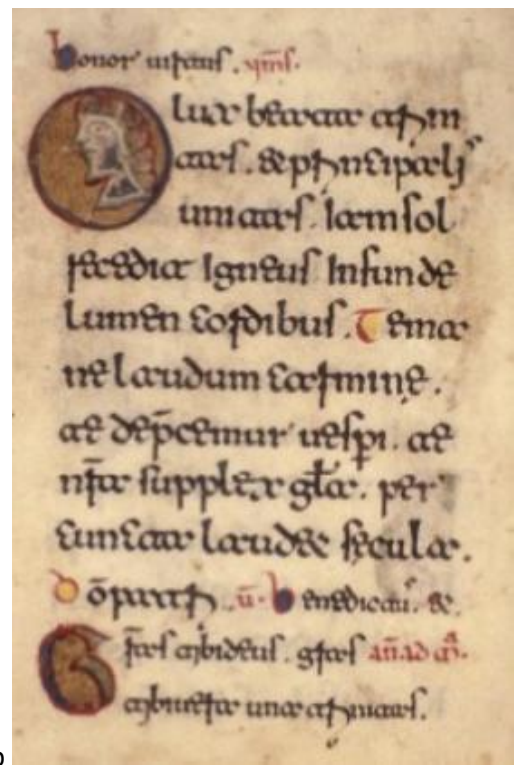 honor uirtus. ymn̄s.
O lux beata trin
itas. & principali
unitas. Iam sol
recedit Igneus Infunde
lumen cordibus. Te ma
ne laudum carmine.
te dep̄cemur uesp̄i. te
nr̄a supplex gl̄a. per
cuncta laudet secula.
Dō patri. v̄. Benedicam̄.
Gr̄as tibi deus. gr̄as an̄ ad m̄.
tibi uera una trinitas.